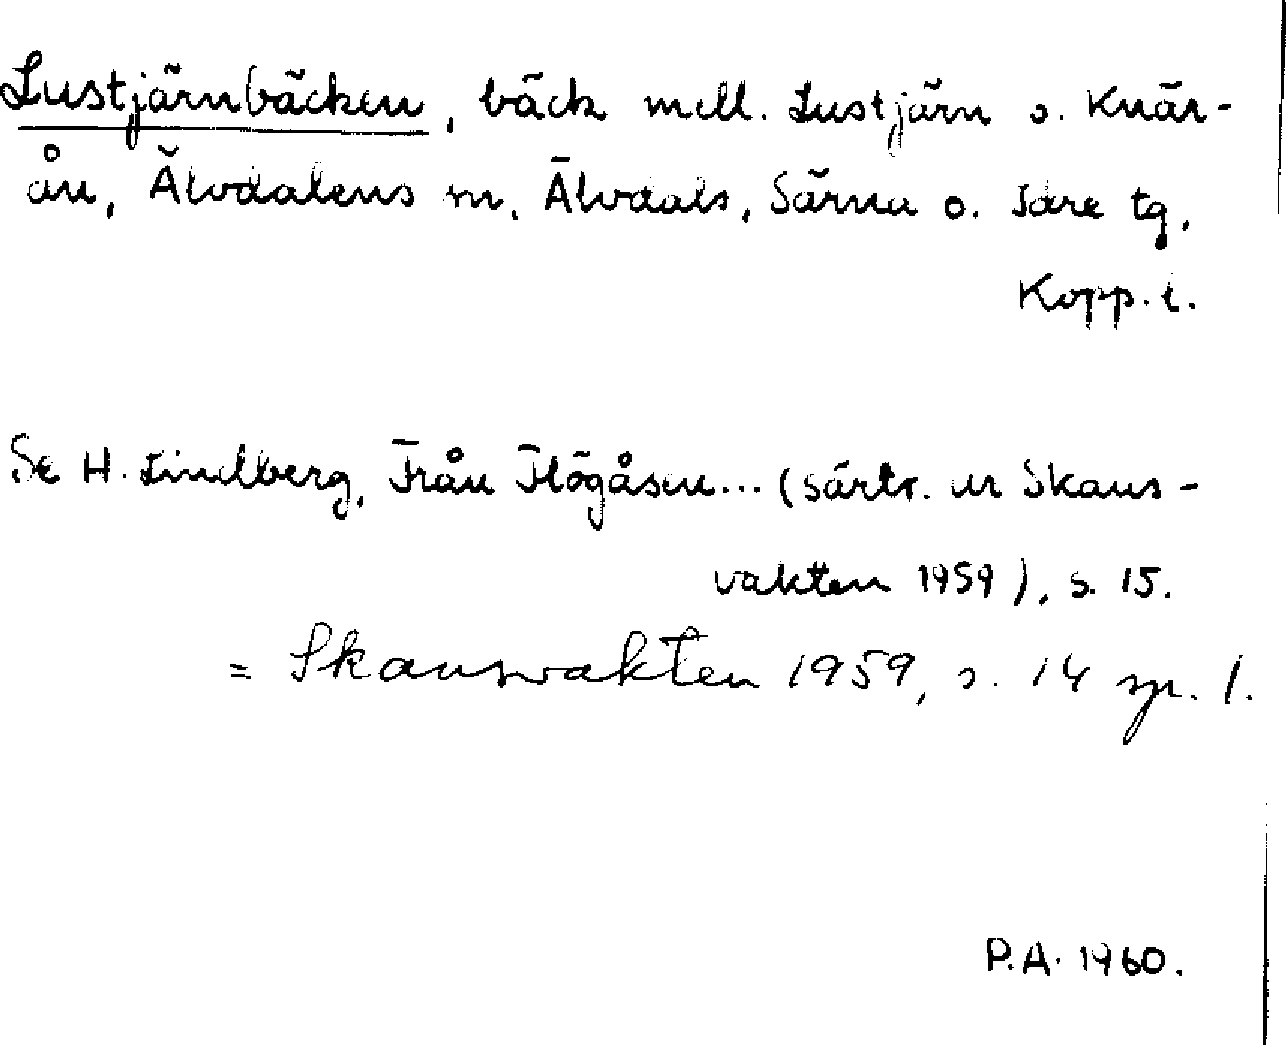 Lustjärnbäcken, bäck mell. Lustjärn o. Knär-
ån, Älvdalens sn, Älvdals, Särna o. Idre tg,
Kopp. l.
Se H. Lindberg, Från Flögåsen... (särtr. ur Skans-
vakten 1959), s. 15.
= Skansvakten 1959, s. 14 sp. 1.
P.A. 1960.